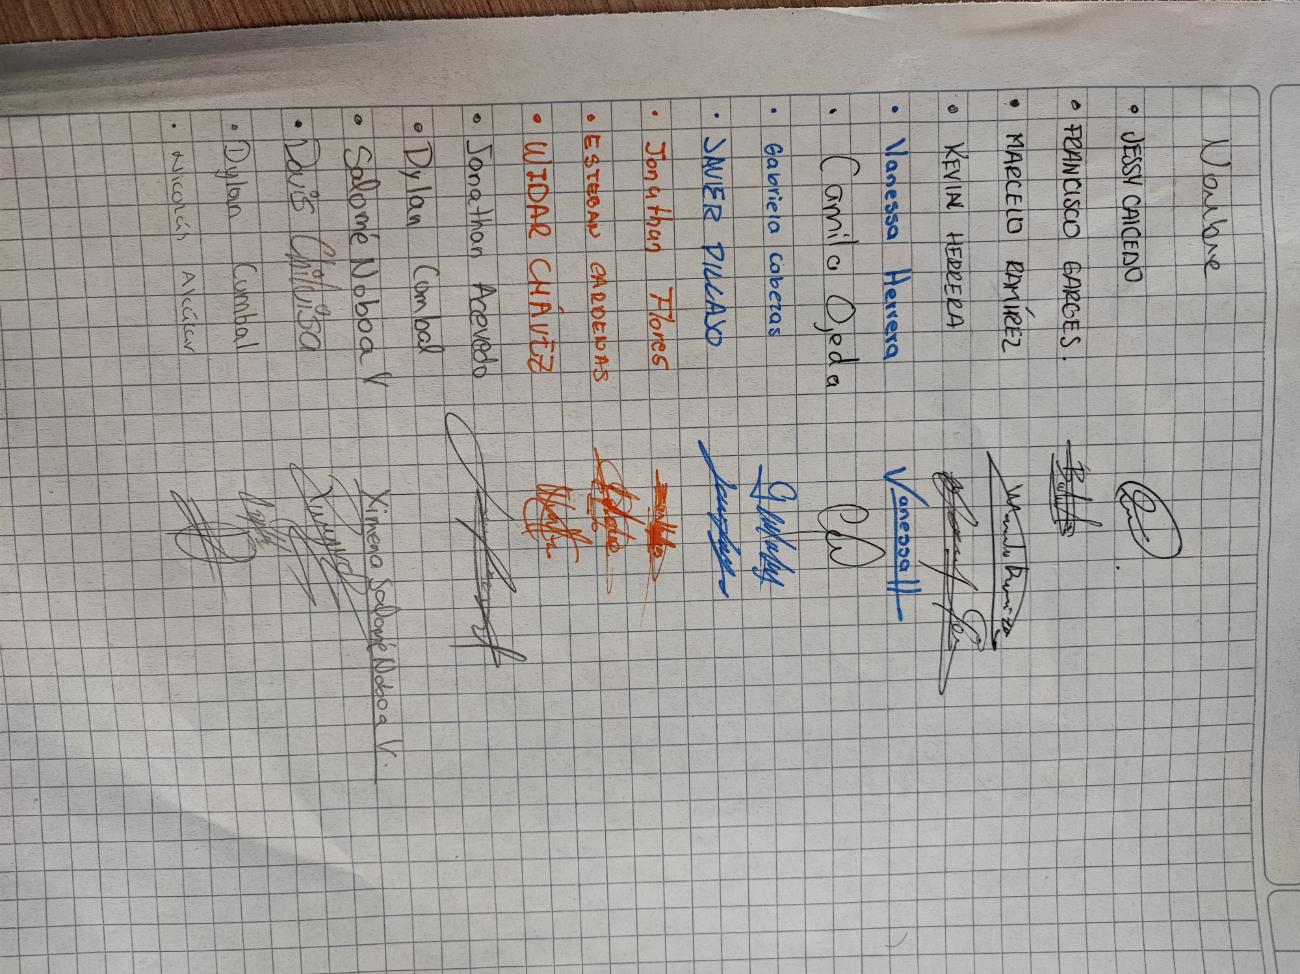 Nombre
• JESSY CAICEDO
• FRANCISCO GARCES.
• MARCELO RAMÍREZ
• KEVIN HERRERA
• Vanessa Herrera Vanessa H
• Camila Ojeda
• Gabriela Cabezas
• JAVIER
• Jonathan Flores
• ESTEBAN CARDENAS
• WIDAR CHÁVEZ
• Jonathan Acevedo
• Dylan Cumbal
• Salomé Noboa V Ximena Salomé Noboa V.
• Davis Chiluisa
• Dylan Cumbal
• Nicolás Alcácer